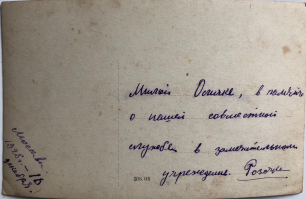 Милой Осичке, в память
о нашей совместной
службе в замечательном
учреждении. Розочка
Москва
1926 г. 18